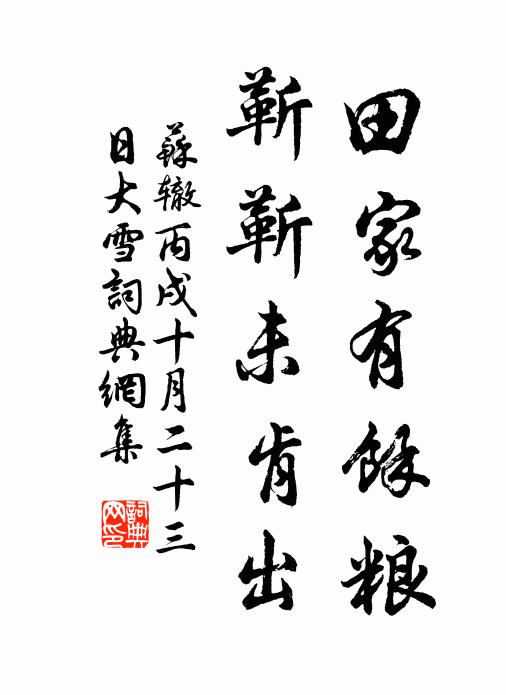 田家有餘粮
靳靳未肯出
蘇辙丙戌十月二十三
日大雪詞典網集
詞典
网印